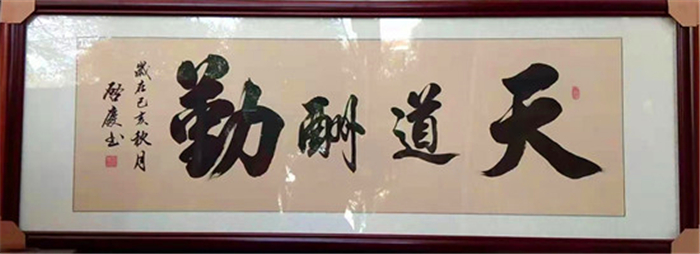 天道酬勤
歲在己亥秋月
啓慶書